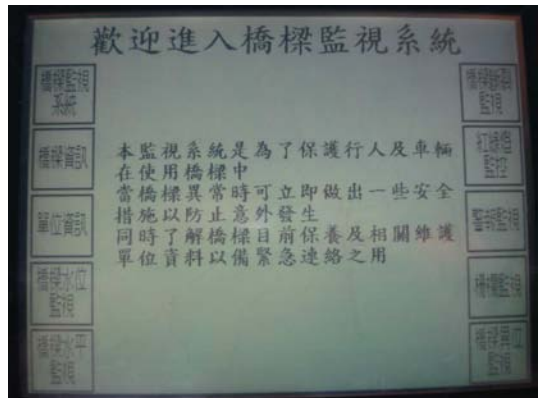 歡迎進入橋樑監視系統
橋樑監視
系統
橋樑資訊
單位資訊
橋樑水位
監視
橋樑水平
監視
本監視系統是為了保護行人及車輛
在使用橋樑中
當橋樑異常時可立即做出一些安全
措施以防止意外發生
同時了解橋樑目前保養及相關維護
單位資料以備緊急連絡之用
橋樑斷裂
監視
紅綠燈
監控
警報監視
柵欄監視
監視